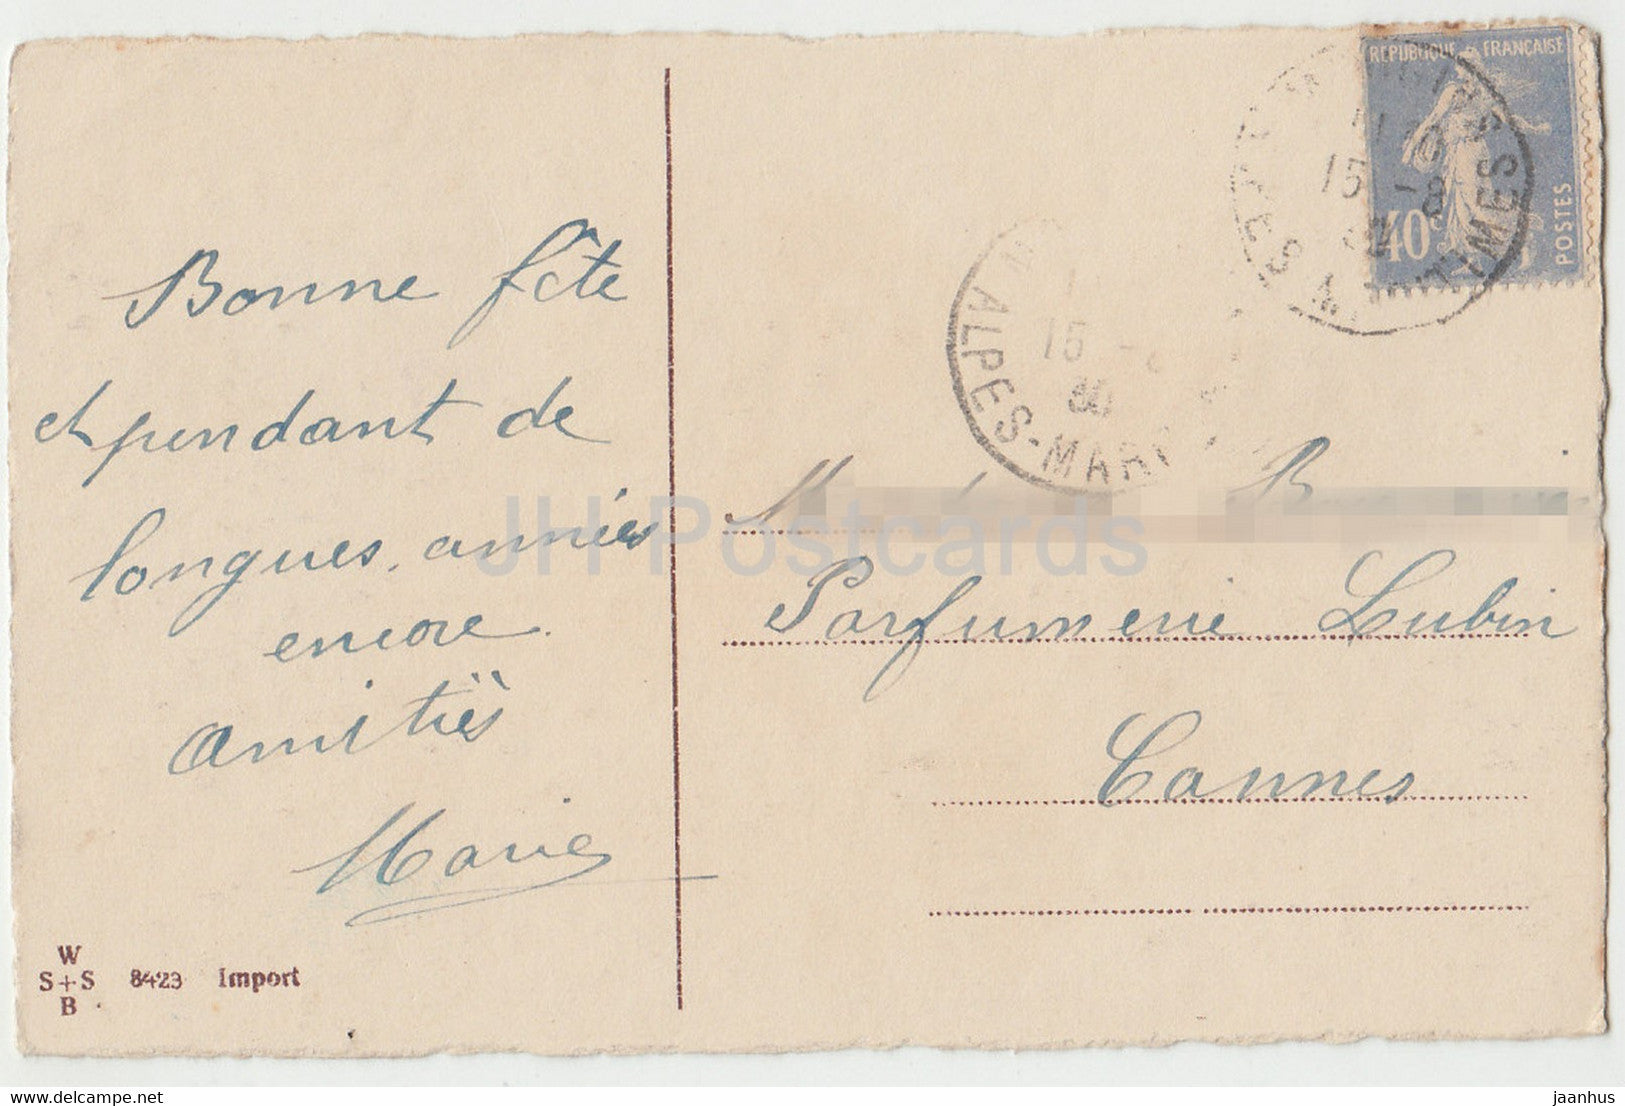 Bonne fête
et pendant de
longues années
encore.
amitiés
Marie
W
S+S 8423 Import
B
REPUBLIQUE FRANÇAISE
40c
POSTES
15 -8
ALPES-MAR
15
30
Parfumerie Lubin
Cannes
JH Postcards
www.delcampe.net
jaanhus